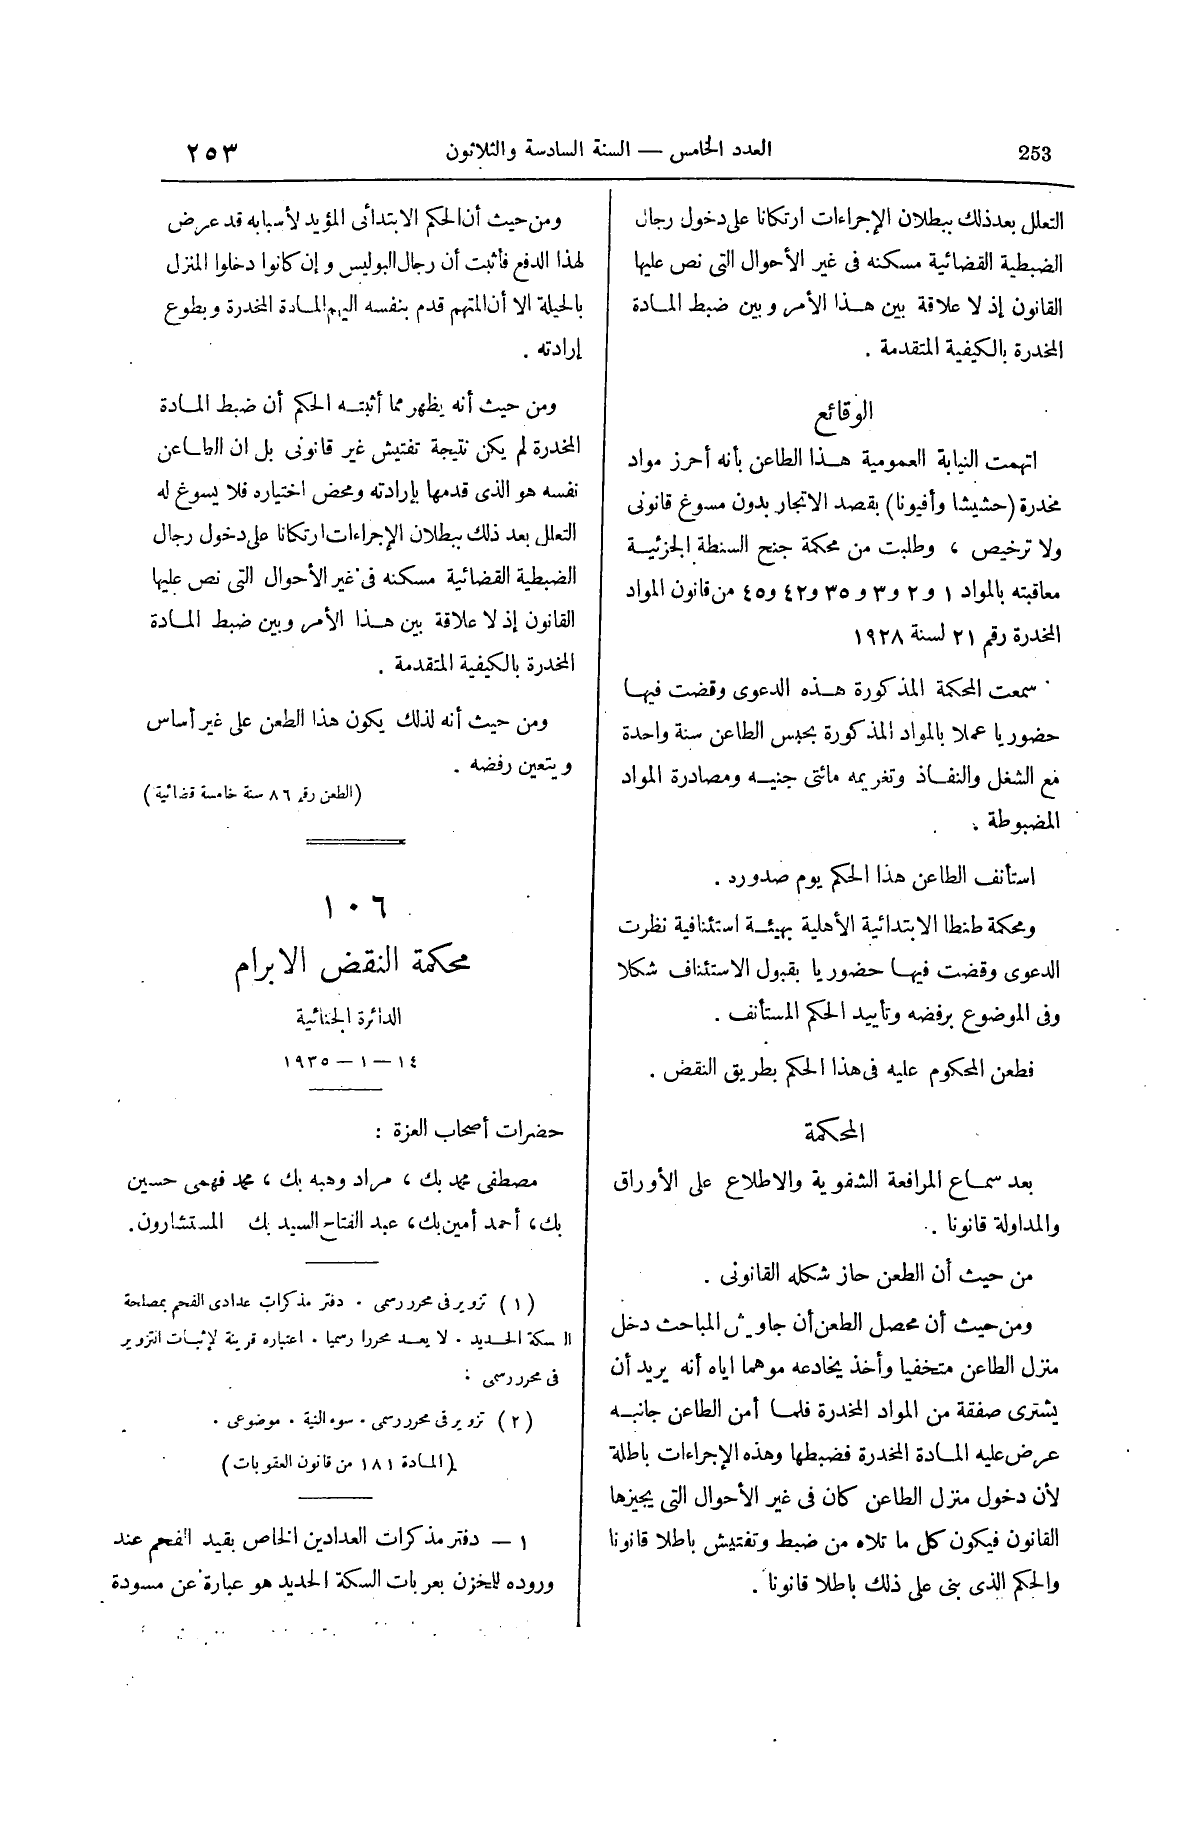 253
العدد الخامس — السنة السادسة والثلاثون
٢٥٣
التعلل بعد ذلك ببطلان الإجراءات ارتكانا على دخول رجال
الضبطية القضائية مسكنه فى غير الأحوال التى نص عليها
القانون إذ لا علاقة بين هذا الأمر وبين ضبط المادة
المخدرة بالكيفية المتقدمة .
الوقائع
اتهمت النيابة العمومية هذا الطاعن بأنه أحرز مواد
مخدرة (حشيشا وأفيونا) بقصد الاتجار بدون مسوغ قانونى
ولا ترخيص ، وطلبت من محكمة جنح السنطة الجزئية
معاقبته بالمواد ١ و٢ و٣ و ٣٥ و٤٢ و٤٥ من قانون المواد
المخدرة رقم ٢١ لسنة ١٩٢٨
سمعت المحكمة المذكورة هذه الدعوى وقضت فيها
حضوريا عملا بالمواد المذكورة بحبس الطاعن سنة واحدة
مع الشغل والنفاذ وتغريمه مائتى جنيه ومصادرة المواد
المضبوطة .
استأنف الطاعن هذا الحكم يوم صدورد .
ومحكمة طنطا الابتدائية الأهلية بهيئة استئنافية نظرت
الدعوى وقضت فيها حضوريا بقبول الاستئناف شكلا
وفى الموضوع برفضه وتأييد الحكم المستأنف .
فطعن المحكوم عليه فى هذا الحكم بطريق النقض .
المحكمة
بعد سماع المرافعة الشفوية والاطلاع على الأوراق
والمداولة قانونا .
من حيث أن الطعن حاز شكله القانونى .
ومن حيث أن محصل الطعن أن جاويش المباحث دخل
منزل الطاعن متخفيا وأخذ يخادعه موهما اياه أنه يريد أن
يشترى صفقة من المواد المخدرة فلما أمن الطاعن جانبه
عرض عليه المادة المخدرة فضبطها وهذه الإجراءات باطلة
لأن دخول منزل الطاعن كان فى غير الأحوال التى يجيزها
القانون فيكون كل ما تلاه من ضبط وتفتيش باطلا قانونا
والحكم الذى بنى على ذلك باطلا قانونا .
ومن حيث أن الحكم الابتدائى المؤيد لأسبابه قد عرض
لهذا الدفع فأثبت أن رجال البوليس وإن كانوا دخلوا المنزل
بالحيلة الا أن المتهم قدم بنفسه اليهم المادة المخدرة وبطوع
إرادته .
ومن حيث أنه يظهر مما أثبته الحكم أن ضبط المادة
المخدرة لم يكن نتيجة تفتيش غير قانونى بل ان الطاعن
نفسه هو الذى قدمها بإرادته ومحض اختياره فلا يسوغ له
التعلل بعد ذلك ببطلان الإجراءات ارتكانا على دخول رجال
الضبطية القضائية مسكنه فى غير الأحوال التى نص عليها
القانون إذ لا علاقة بين هذا الأمر وبين ضبط المادة
المخدرة بالكيفية المتقدمة .
ومن حيث أنه لذلك يكون هذا الطعن على غير أساس
ويتعين رفضه .
(الطعن رقم ٨٦ سنة خامسة قضائية)
١٠٦
محكمة النقض الابرام
الدائرة الجنائية
١٤ – ١ – ١٩٣٥
حضرات أصحاب العزة :
مصطفى محمد بك ، مراد وهبه بك ، محمد فهمى حسين
بك ، أحمد أمين بك ، عبد الفتاح السيد بك المستشارون.
(١) تزوير فى محرر رسمى . دفتر مذكرات عدادى الفحم بمصلحة
السكة الحديد . لا يعد محررا رسميا . اعتباره قرينة لإثبات التزوير
فى محرر رسمى :
(٢) تزوير فى محرر رسمى . سوء النية . موضوعى .
(المادة ١٨١ من قانون العقوبات)
١ – دفتر مذكرات العدادين الخاص بقيد الفحم عند
وروده للمخزن بعربات السكة الحديد هو عبارة عن مسودة